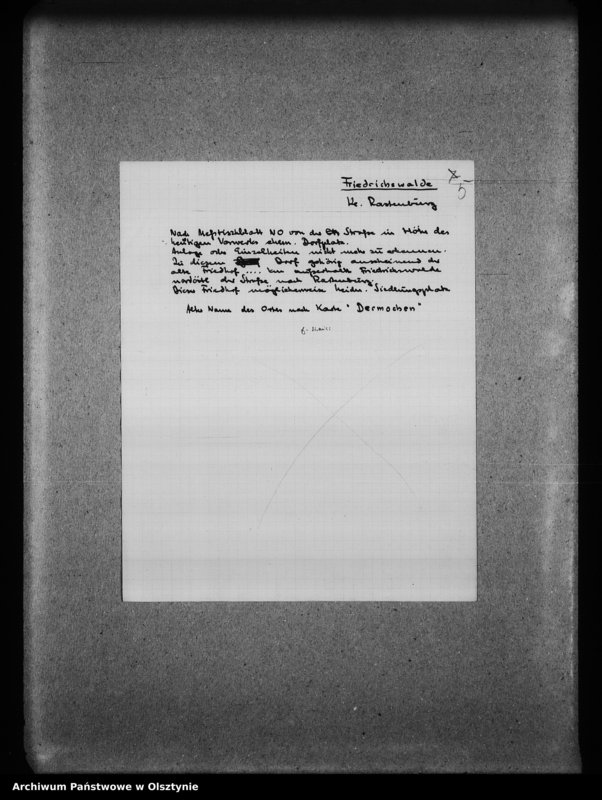 Friedrichswalde
5
Kr. Rastenburg
Nach Meßtischblatt NO von der Straße in Höhe des
heutigen Vorwerks ehem. Dorfplatz.
Anlage oder Einzelheiten nicht mehr zu erkennen.
Zu diesem Dorf gehörig anscheinend der
alte Friedhof .... km außerhalb Friedrichswalde
nordöstl. der Straße nach Rastenburg.
Dieser Friedhof möglicherweise heidn. Siedlungsplatz
Alter Name des Ortes nach Karte "Dermochen"
Archiwum Państwowe w Olsztynie